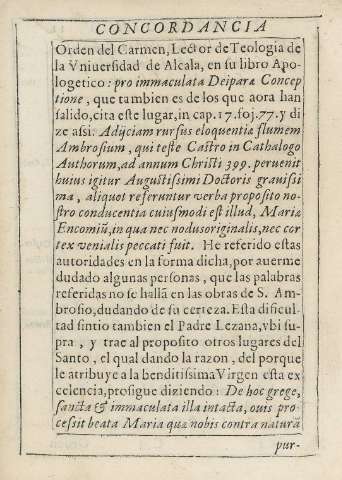 CONCORDANCIA
Orden del Carmen, Lector de Teologia de
la Vniuersidad de Alcala, en su libro Apo-
logetico: pro immaculata Deiparæ Concep
tione, que tambien es de los que aora han
salido, cita este lugar, in cap. 17. foj. 77. y di
ze assi: Adijciam rursus eloquentiæ flumem
Ambrosium, qui teste Castro in Cathalogo
Authorum, ad annum Christi 399. peruenit
huius igitur Augustissimi Doctoris grauissi
ma, aliquot referuntur verba proposito no-
stro conducentia cuiusmodi est illud, Mariæ
Encomiũ, in qua nec nodus originalis, nec cor
tex venialis peccati fuit. He referido estas
autoridades en la forma dicha, por auerme
dudado algunas personas, que las palabras
referidas no se hallã en las obras de S. Am-
brosio, dudando de su certeza. Esta dificul-
tad sintio tambien el Padre Lezana, vbi su-
pra, y trae al proposito otros lugares del
Santo, el qual dando la razon, del porque
le atribuye a la benditissima Virgen esta ex
celencia, prosigue diziendo: De hoc grege,
sancta & immaculata illa intacta, ouis pro-
cessit beata Maria quæ nobis contra naturã
pur-